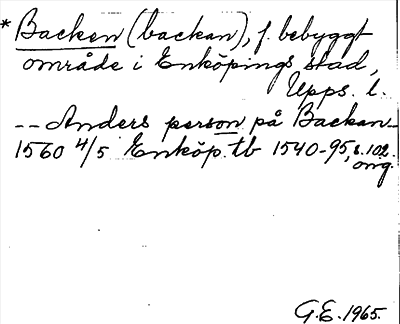 * Backen (backan), f. bebyggt
område i Enköpings stad,
Upps. l.
-- Anders person på Backan --
1560 4/5 Enköp. tb 1540-95, s. 102.
orig.
G.E. 1965.